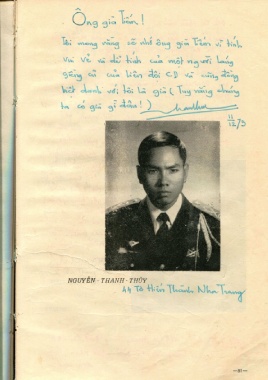 Ông già Tiến!
Tôi mong rằng sẽ nhớ ông già Tiến vì tính
vui vẻ và dễ tính của một người láng
giềng cũ của liên đội CD và cũng đồng
biệt danh với tôi là già (Tuy rằng chúng
ta có già gì đâu!)
11/12/73
NGUYỄN-THANH-THỦY
44 Tô Hiến Thành Nha Trang